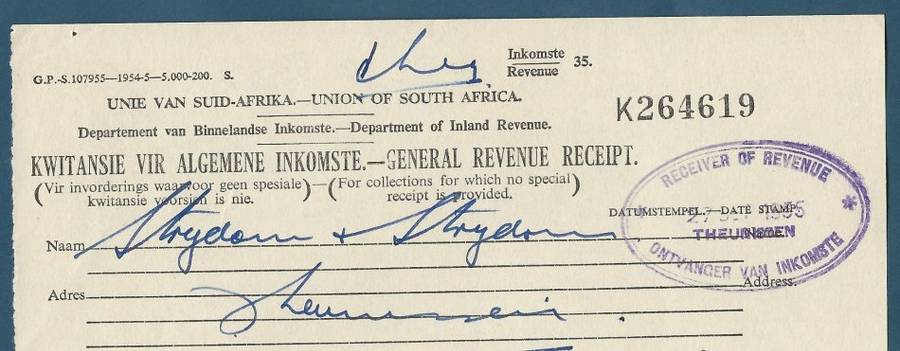 cheq
Inkomste
Revenue 35.
G.P.-S.107955—1954-5—5,000-200. S.
UNIE VAN SUID-AFRIKA.—UNION OF SOUTH AFRICA.
K264619
Departement van Binnelandse Inkomste.—Department of Inland Revenue.
KWITANSIE VIR ALGEMENE INKOMSTE.—GENERAL REVENUE RECEIPT.
(Vir invorderings waarvoor geen spesiale kwitansie voorsien is nie.)—(For collections for which no special receipt is provided.)
RECEIVER OF REVENUE
DATUMSTEMPEL.—DATE STAMP.
1955
THEUNISSEN
ONTVANGER VAN INKOMSTE
Naam Strydom & Strydom Name.
Adres Theunissen. Address.